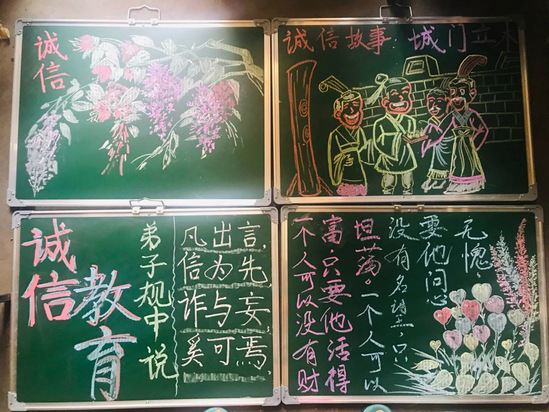 诚信
诚信故事 城门立木
诚信
教育
弟子规中说
凡出言,
信为先,
诈与妄,
奚可焉,
一个人可以没有财
富 只要他活得
坦荡。一个人可以
没有名望 只
要他问心
无愧